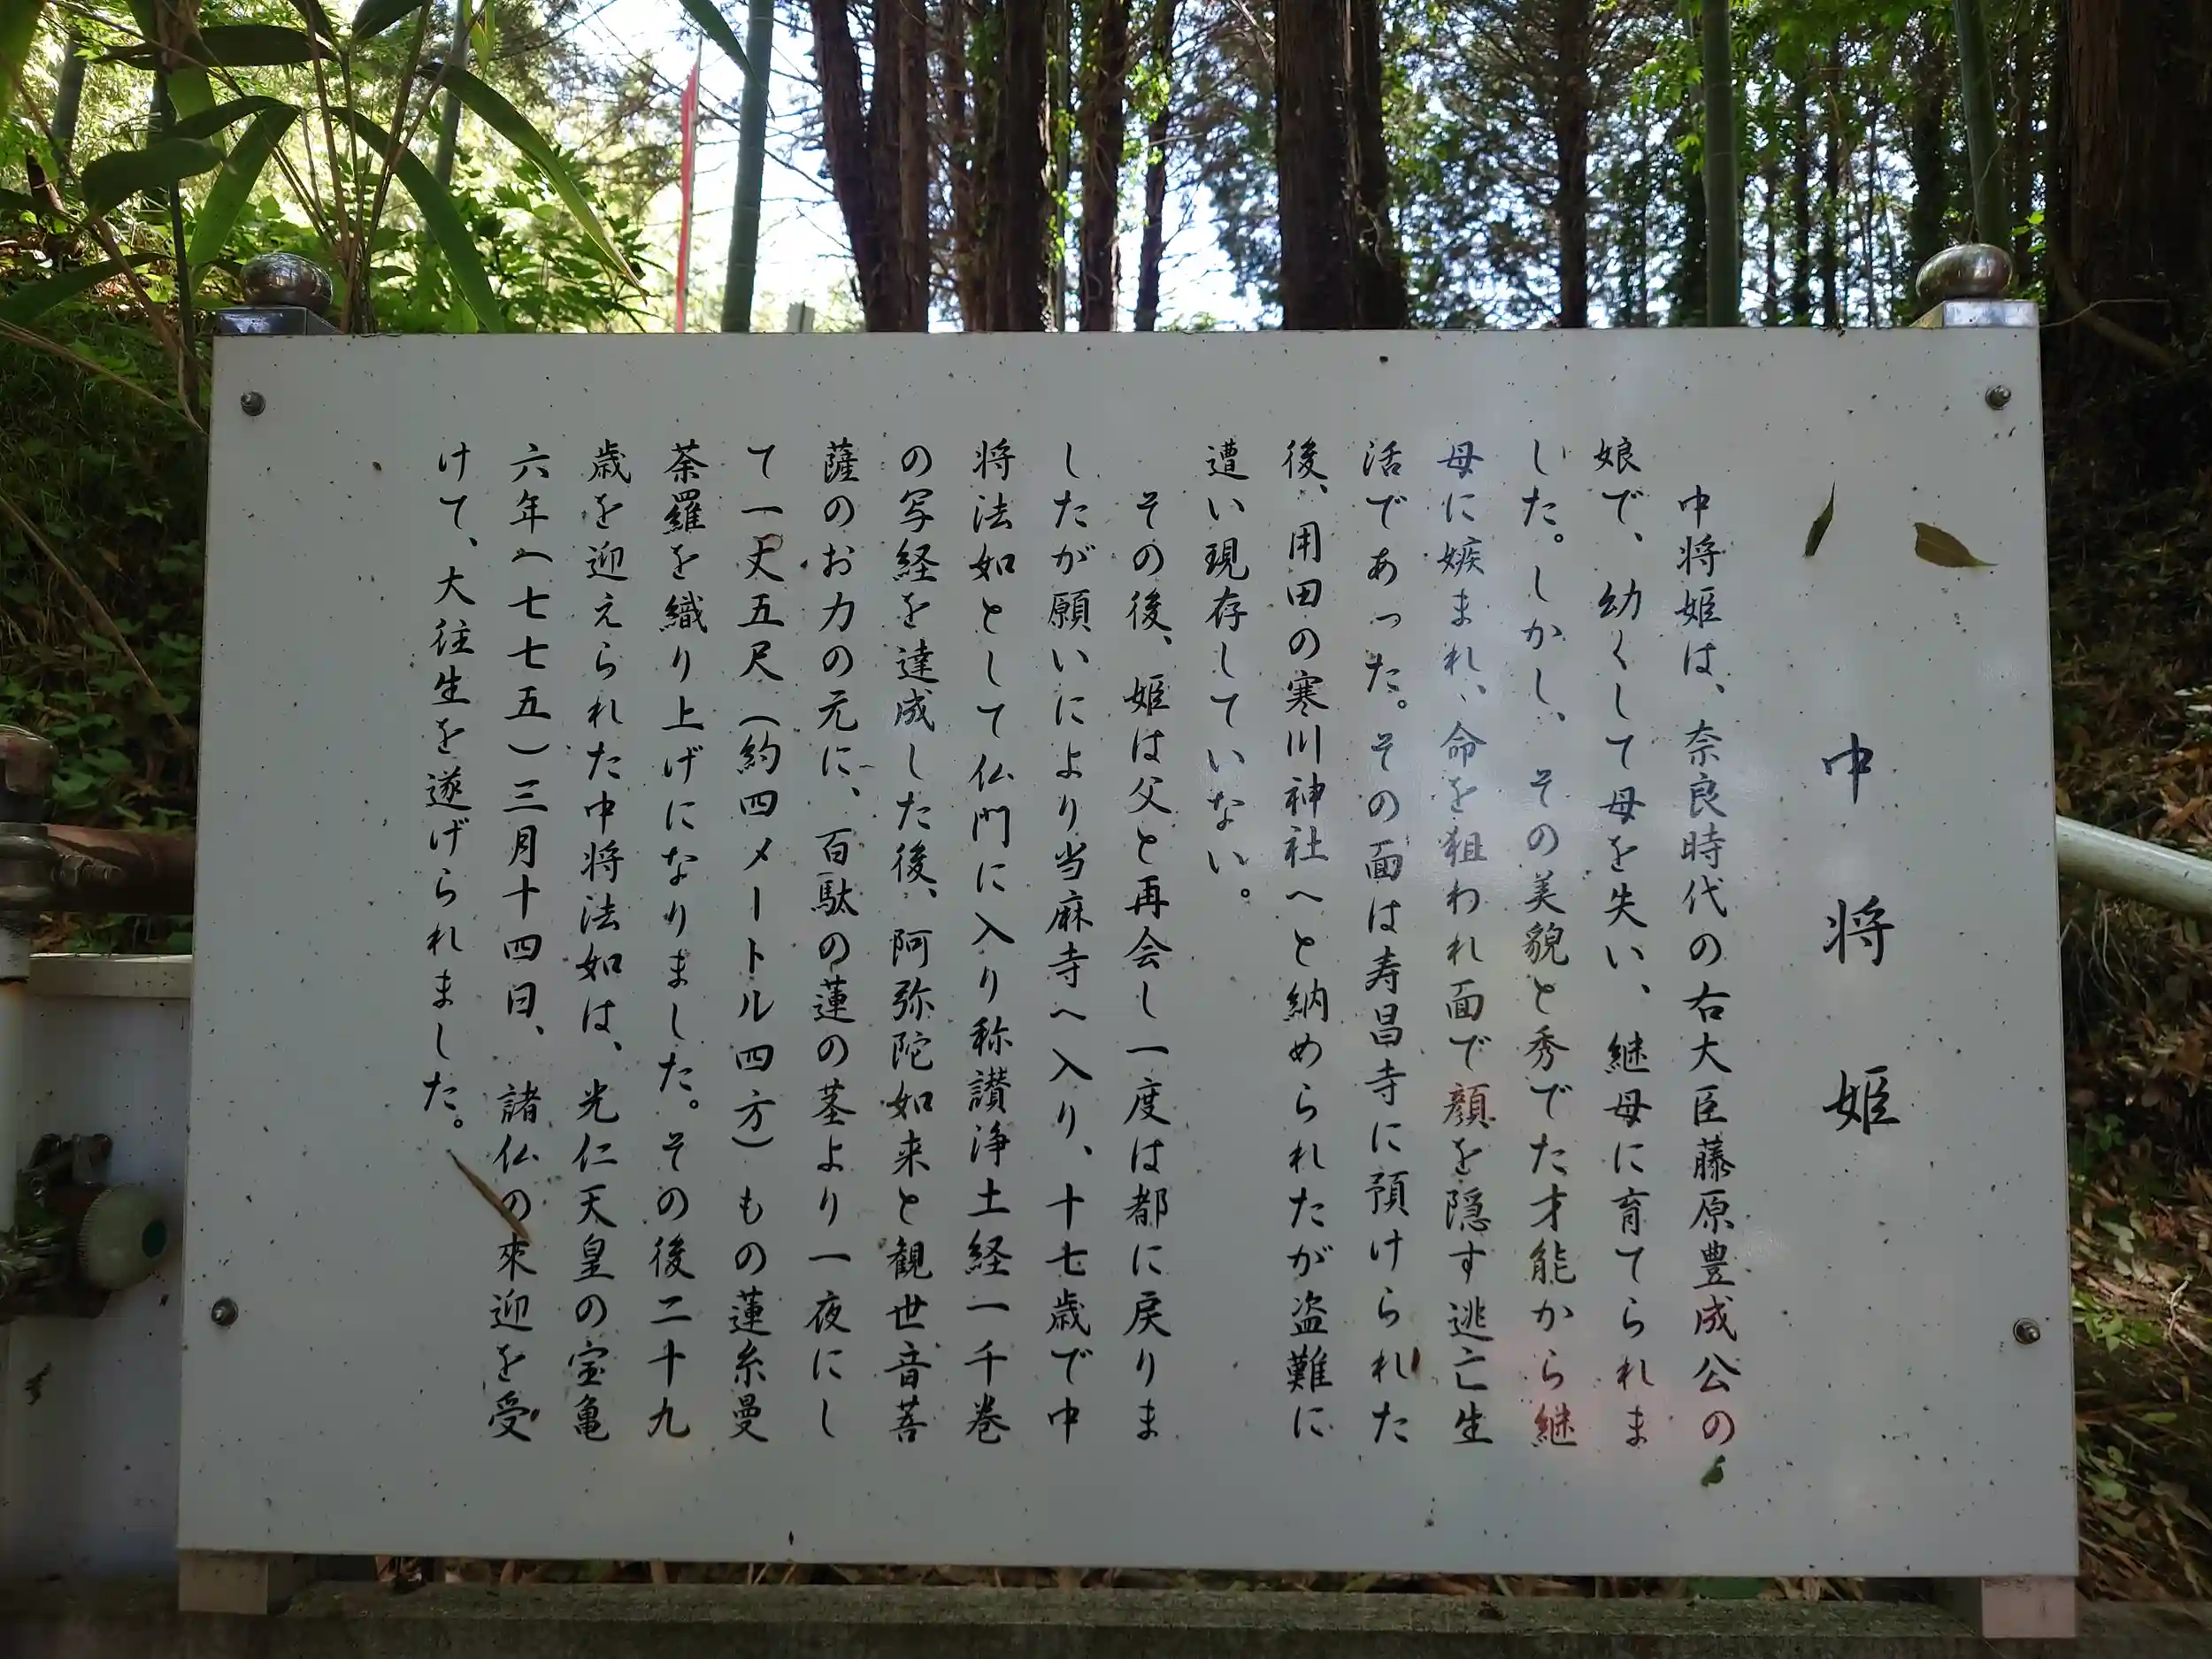 中将姫
中将姫は、奈良時代の右大臣藤原豊成公の
娘で、幼くして母を失い、継母に育てられま
した。しかし、その美貌と秀でた才能から継
母に嫉まれ、命を狙われ面で顔を隠す逃亡生
活であった。その面は寿昌寺に預けられた
後、用田の寒川神社へと納められたが盗難に
遭い現存していない。
その後、姫は父と再会し一度は都に戻りま
したが願いにより当麻寺へ入り、十七歳で中
将法如として仏門に入り称讃浄土経一千巻
の写経を達成した後、阿弥陀如来と観世音菩
薩のお力の元に、百駄の蓮の茎より一夜にし
て一丈五尺(約四メートル四方)もの蓮糸曼
荼羅を織り上げになりました。その後二十九
歳を迎えられた中将法如は、光仁天皇の宝亀
六年(七七五)三月十四日、諸仏の来迎を受
けて、大往生を遂げられました。